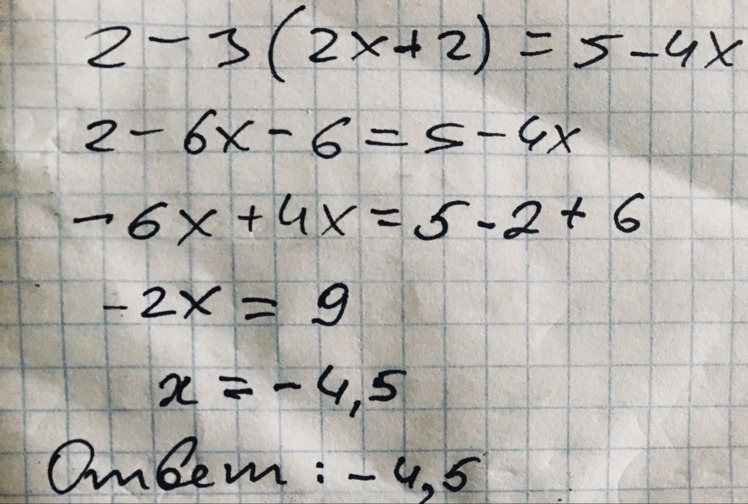 2 - 3(2x+2) = 5 - 4x
2 - 6x - 6 = 5 - 4x
-6x + 4x = 5 - 2 + 6
-2x = 9
x = -4,5
Ответ: -4,5